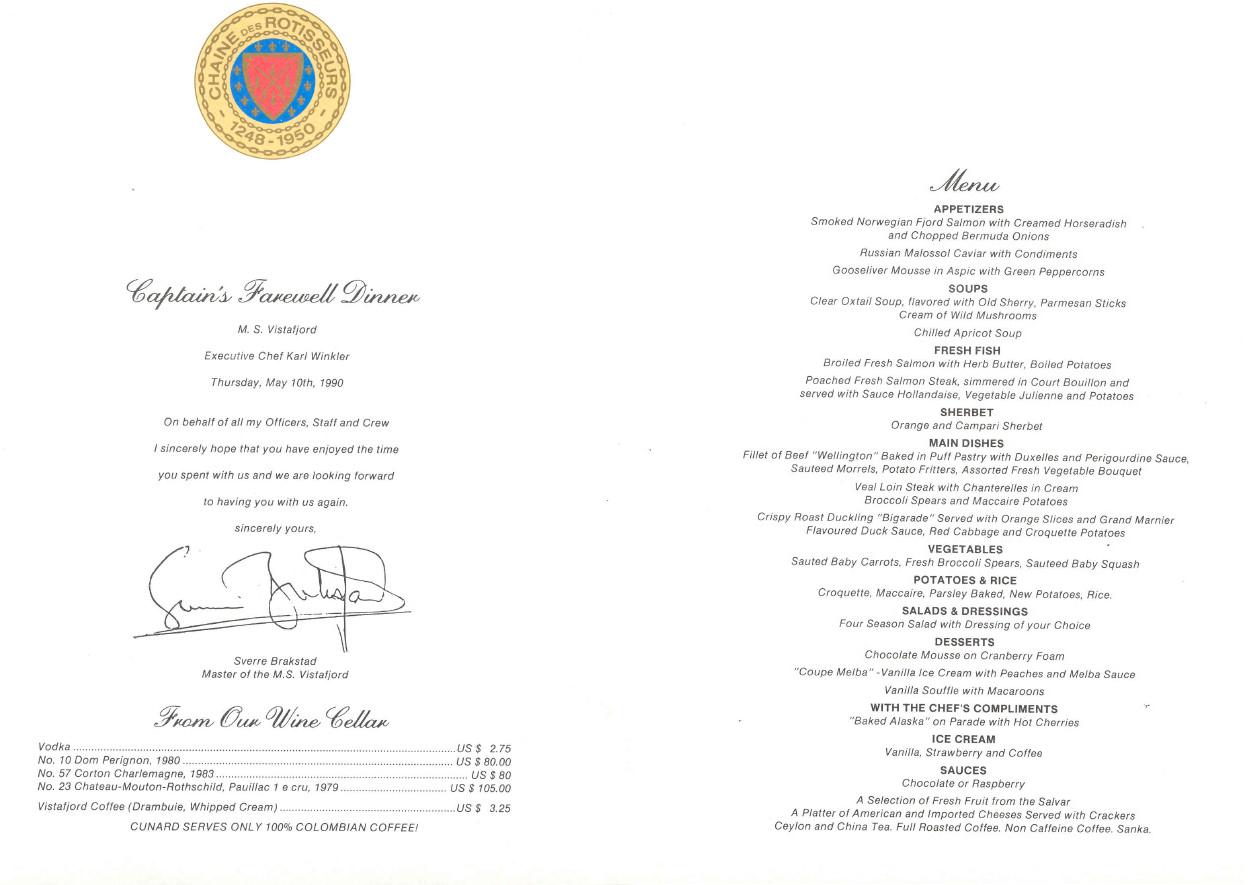 CHAINE DES ROTISSEURS
- 1248 - 1950 -
Captain's Farewell Dinner
M. S. Vistafjord
Executive Chef Karl Winkler
Thursday, May 10th, 1990
On behalf of all my Officers, Staff and Crew
I sincerely hope that you have enjoyed the time
you spent with us and we are looking forward
to having you with us again.
sincerely yours,
Sverre Brakstad
Sverre Brakstad
Master of the M.S. Vistafjord
From Our Wine Cellar
Vodka ..... US $ 2.75
No. 10 Dom Perignon, 1980 ..... US $ 80.00
No. 57 Corton Charlemagne, 1983 ..... US $ 80
No. 23 Chateau-Mouton-Rothschild, Pauillac 1 e cru, 1979 ..... US $ 105.00
Vistafjord Coffee (Drambuie, Whipped Cream) ..... US $ 3.25
CUNARD SERVES ONLY 100% COLOMBIAN COFFEE!
Menu
APPETIZERS
Smoked Norwegian Fjord Salmon with Creamed Horseradish
and Chopped Bermuda Onions
Russian Malossol Caviar with Condiments
Gooseliver Mousse in Aspic with Green Peppercorns
SOUPS
Clear Oxtail Soup, flavored with Old Sherry, Parmesan Sticks
Cream of Wild Mushrooms
Chilled Apricot Soup
FRESH FISH
Broiled Fresh Salmon with Herb Butter, Boiled Potatoes
Poached Fresh Salmon Steak, simmered in Court Bouillon and
served with Sauce Hollandaise, Vegetable Julienne and Potatoes
SHERBET
Orange and Campari Sherbet
MAIN DISHES
Fillet of Beef "Wellington" Baked in Puff Pastry with Duxelles and Perigourdine Sauce,
Sauteed Morrels, Potato Fritters, Assorted Fresh Vegetable Bouquet
Veal Loin Steak with Chanterelles in Cream
Broccoli Spears and Maccaire Potatoes
Crispy Roast Duckling "Bigarade" Served with Orange Slices and Grand Marnier
Flavoured Duck Sauce, Red Cabbage and Croquette Potatoes
VEGETABLES
Sauted Baby Carrots, Fresh Broccoli Spears, Sauteed Baby Squash
POTATOES & RICE
Croquette, Maccaire, Parsley Baked, New Potatoes, Rice.
SALADS & DRESSINGS
Four Season Salad with Dressing of your Choice
DESSERTS
Chocolate Mousse on Cranberry Foam
"Coupe Melba" -Vanilla Ice Cream with Peaches and Melba Sauce
Vanilla Souffle with Macaroons
WITH THE CHEF'S COMPLIMENTS
"Baked Alaska" on Parade with Hot Cherries
ICE CREAM
Vanilla, Strawberry and Coffee
SAUCES
Chocolate or Raspberry
A Selection of Fresh Fruit from the Salvar
A Platter of American and Imported Cheeses Served with Crackers
Ceylon and China Tea. Full Roasted Coffee. Non Caffeine Coffee. Sanka.